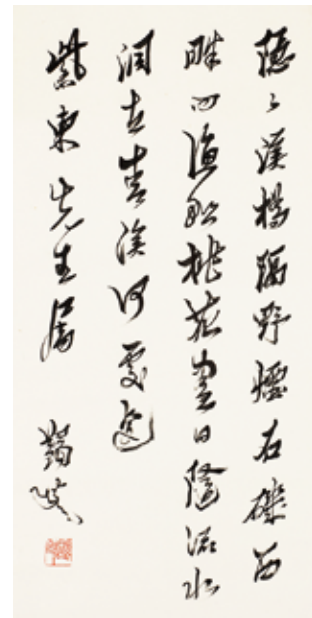 隱々溪橋隔野煙石磯西
畔問漁船桃花盡日隨流水
洞在青溪何處邊
紫東先生屬 蠲叟